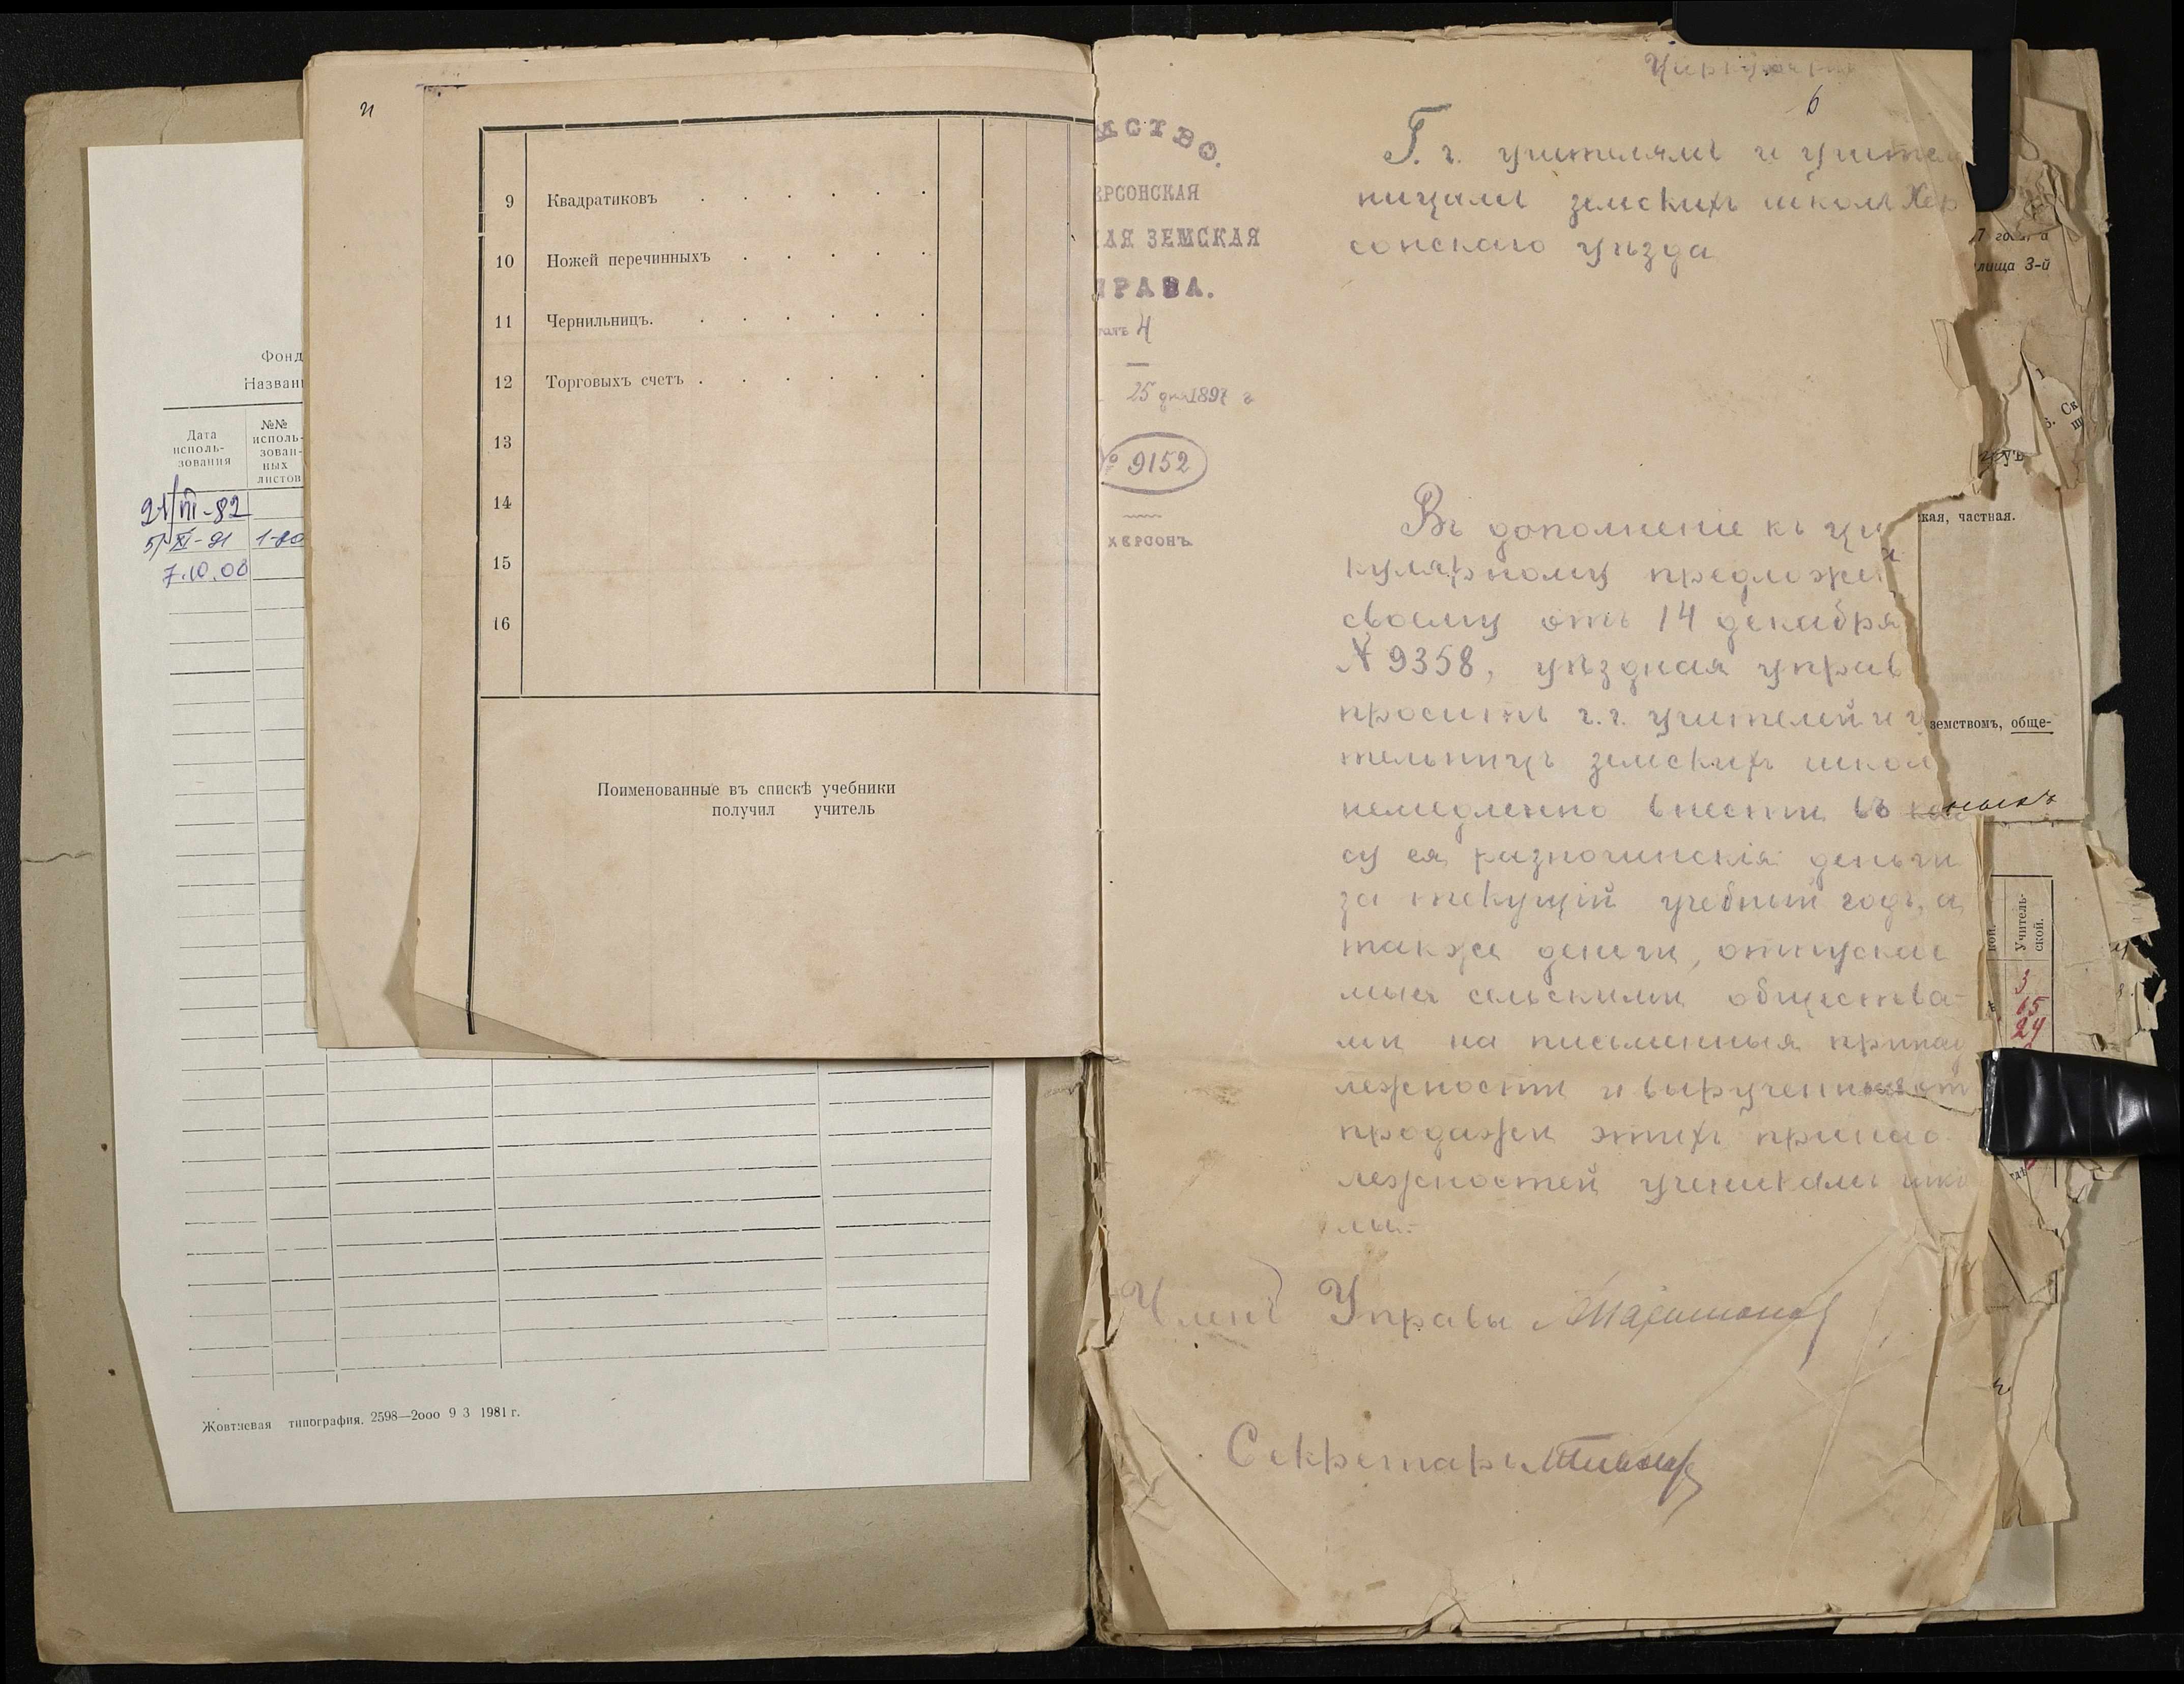 Фонд
Назван
Дата исполь- зования
№№ исполь- зован- ных листов
21/III-82
5/XI-91 1-80
7.10.08
Жовтневая типография. 2598—2000 9 3 1981 г.
и
9 Квадратиковъ . . . . . .
10 Ножей перечинныхъ . . . . .
11 Чернильницъ. . . . . . .
12 Торговыхъ счетъ . . . . . .
13
14
15
16
Поименованные въ спискѣ учебники
получил учитель
МСТВО.
ЕРСОНСКАЯ
АЯ ЗЕМСКАЯ
ПРАВА.
4
25 дек 1897 г
№ 9152
ХЕРСОНЪ
6
Г. г. учителямъ и учитель
ницамъ земскихъ школъ Хер
сонскаго уѣзда
Въ дополненіе къ ци
кулярному предложен
своему отъ 14 декабря
№ 9358, уѣздная управ
проситъ г.г. учителей и у
тельницъ земскихъ школ
немедленно внести въ кас
су ея разночинскія деньги
за текущій учебный годъ, а
также деньги, отпускае
мыя сельскими общества-
ми на письменныя принад
лежности и вырученныя от
продажи этихъ принад
лежностей ученикамъ шко
лы.-
Членъ Управы
Секретарь
7 года
лища 3-й
кая, частная.
земствомъ, обще-
ной.
Учитель- ской.
3
65
24